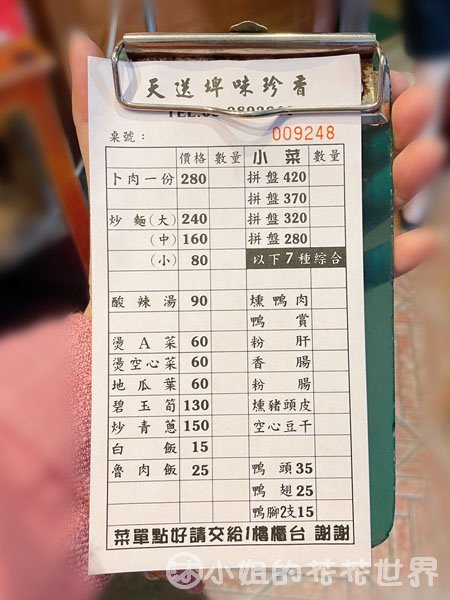 天送埤味珍香
桌號：
009248
價格 數量 小菜 數量
卜肉一份 280 拼盤 420
拼盤 370
炒麵(大) 240 拼盤 320
(中) 160 拼盤 280
(小) 80 以下7種綜合
酸辣湯 90 燻鴨肉
鴨賞
燙A菜 60 粉肝
燙空心菜 60 香腸
地瓜葉 60 粉腸
碧玉筍 130 燻豬頭皮
炒青蔥 150 空心豆干
白飯 15
魯肉飯 25 鴨頭 35
鴨翅 25
鴨腳2支15
菜單點好請交給1樓櫃台 謝謝
小姐的花花世界